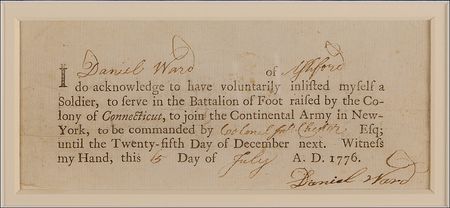 I Daniel Ward of Ashford
do acknowledge to have voluntarily inlisted myself a
Soldier, to serve in the Battalion of Foot raised by the Co-
lony of Connecticut, to join the Continental Army in New-
York, to be commanded by Colonel Jno. Chester Esq;
until the Twenty-fifth Day of December next. Witness
my Hand, this 15 Day of July A. D. 1776.
Daniel Ward